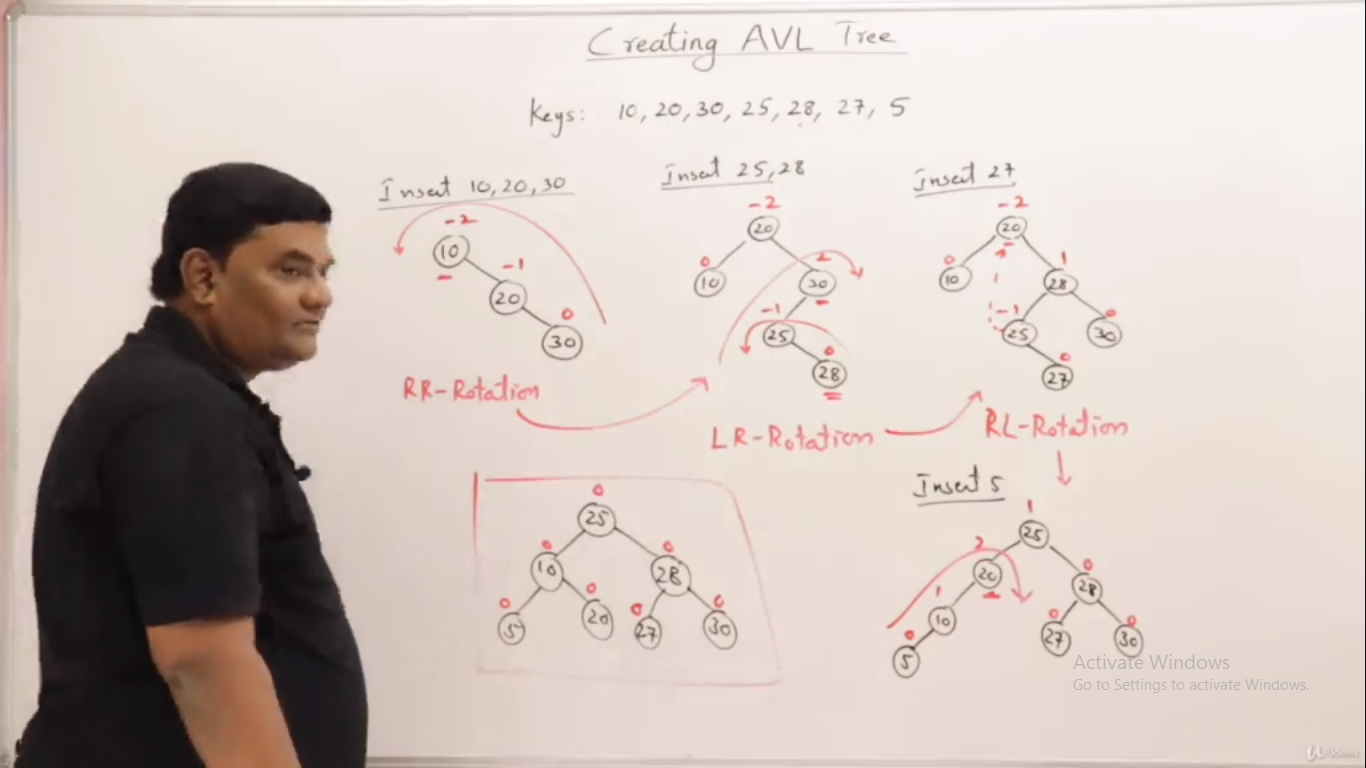 Creating AVL Tree
Keys: 10, 20, 30, 25, 28, 27, 5
Insert 10, 20, 30
-2
10
-1
20
0
30
RR-Rotation
Insert 25, 28
-2
20
0
10
2
30
-1
25
0
28
LR-Rotation
Insert 27
-2
20
0
10
1
28
-1
25
0
30
0
27
RL-Rotation
Insert 5
1
25
2
20
0
28
1
10
0
27
0
30
0
5
0
25
0
10
0
28
0
5
0
20
0
27
0
30
Activate Windows
Go to Settings to activate Windows.
Udemy